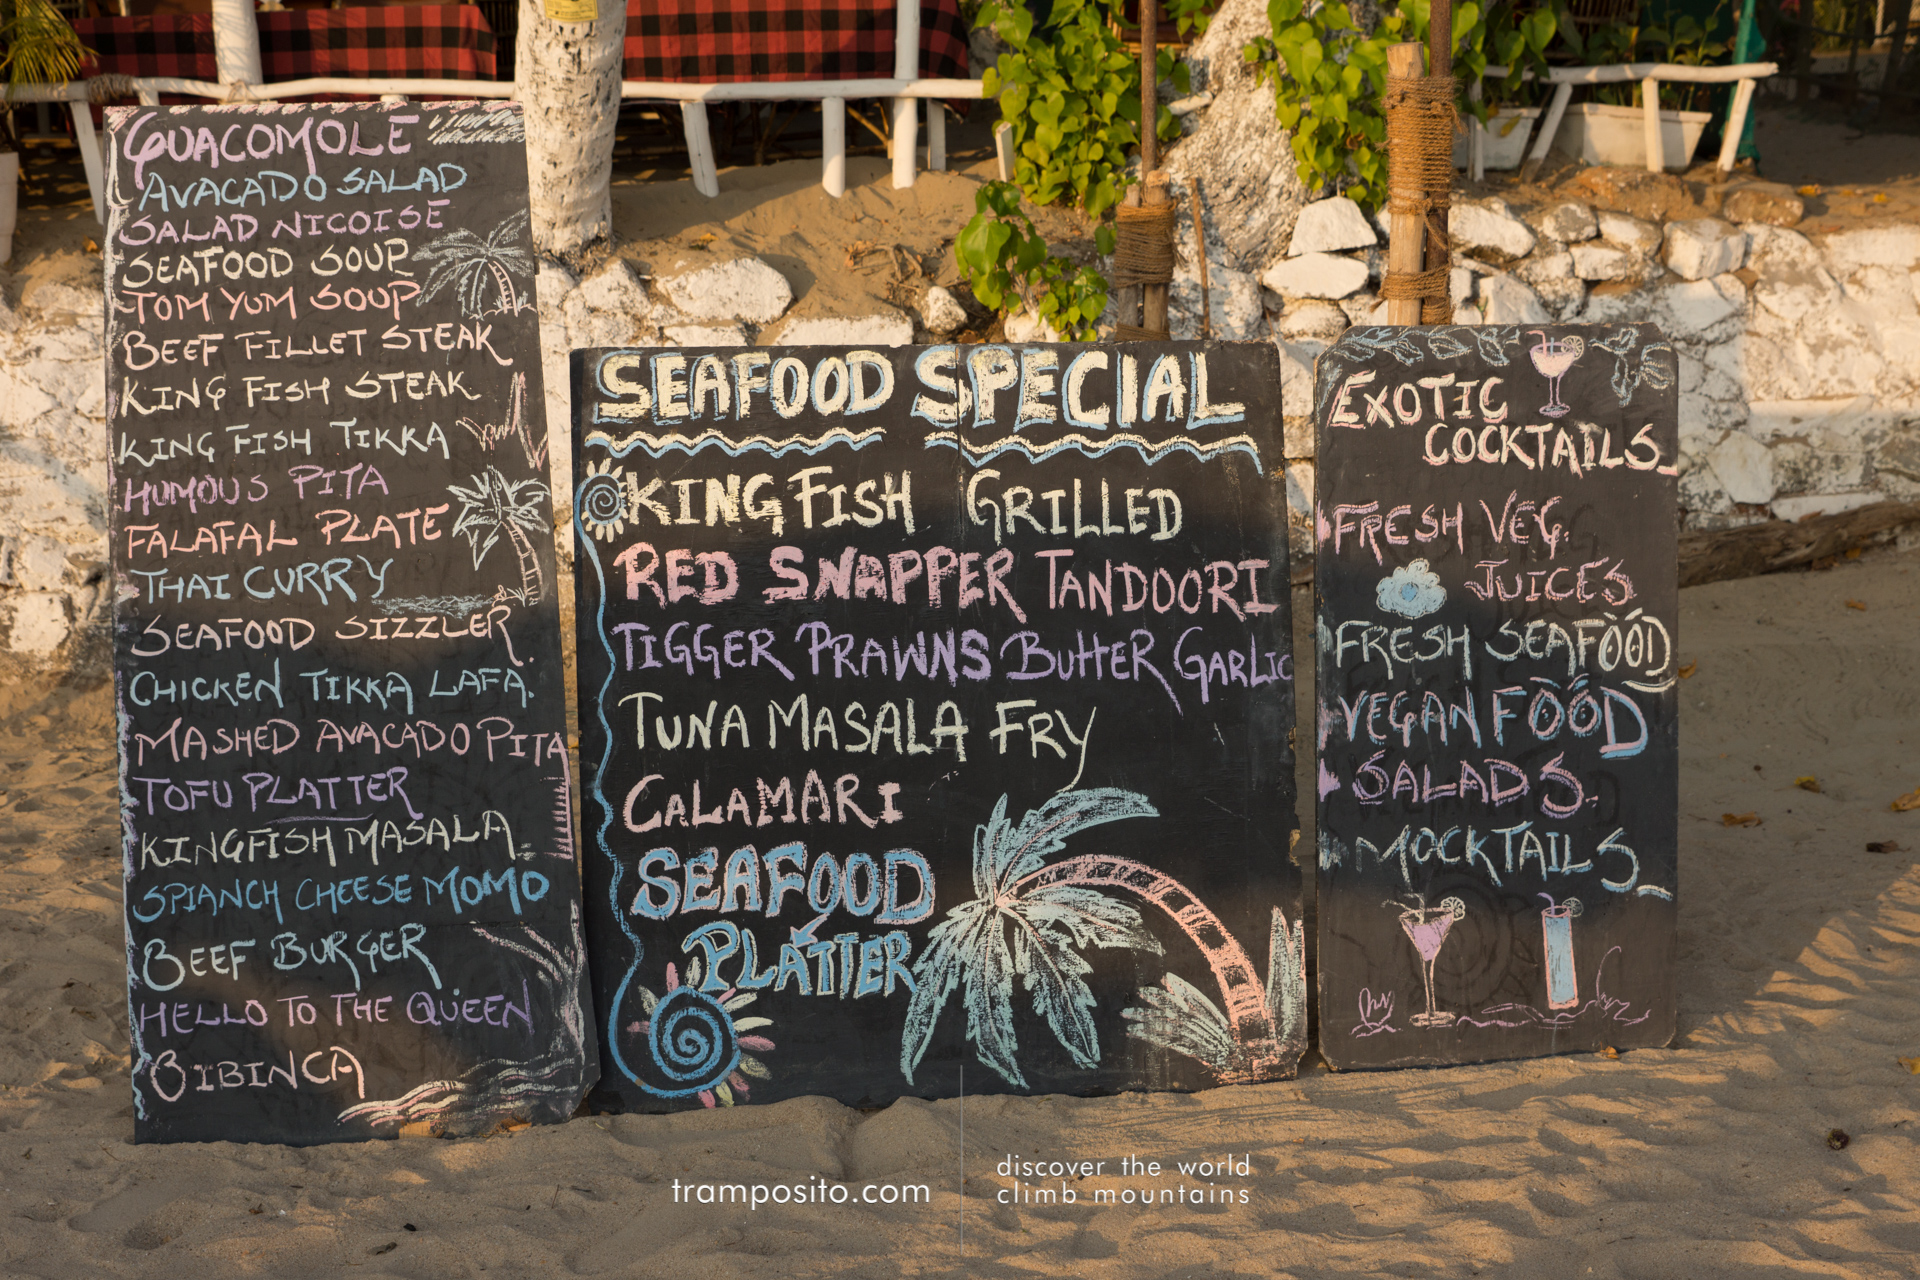 GUACOMOLE
AVACADO SALAD
SALAD NICOISE
SEAFOOD SOUP
TOM YUM SOUP
BEEF FILLET STEAK
KING FISH STEAK
KING FISH TIKKA
HUMOUS PITA
FALAFAL PLATE
THAI CURRY
SEAFOOD SIZZLER.
CHICKEN TIKKA LAFA.
MASHED AVACADO PITA
TOFU PLATTER
KINGFISH MASALA
SPIANCH CHEESE MOMO
BEEF BURGER
HELLO TO THE QUEEN
BIBINCA
SEAFOOD SPECIAL
KING FISH GRILLED
RED SNAPPER TANDOORI
TIGGER PRAWNS BUTTER GARLIC
TUNA MASALA FRY
CALAMARI
SEAFOOD
PLATTER
EXOTIC
COCKTAILS
FRESH VEG.
JUICES
FRESH SEAFOOD
VEGAN FOOD
SALADS.
MOCKTAILS
tramposito.com
discover the world
climb mountains